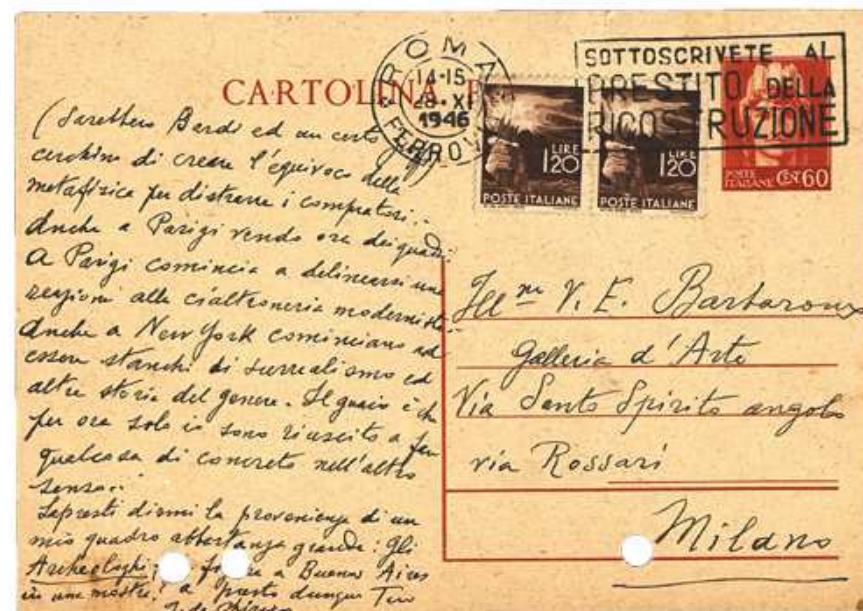 ROMA
FERROVIA
14-15
28·XI
1946
SOTTOSCRIVETE AL
PRESTITO DELLA
RICOSTRUZIONE
CARTOLINA
LIRE
120
POSTE ITALIANE
LIRE
120
POSTE ITALIANE
POSTE
ITALIANE CENT 60
(Sarebbero Bardi ed un certo
cerchino di creare l'equivoco della
metafisica per distrarre i compratori.-
Anche a Parigi vendo ora dei quadri
A Parigi comincia a delinearsi una
reazione alla cialtroneria modernista
Anche a New York cominciano ad
essere stanchi di surrealismo ed
altre storie del genere. Il guaio è che
per ora solo io sono riuscito a far
qualcosa di concreto nell'altro
senso..
Sapresti dirmi la provenienza di un
mio quadro abbastanza grande: Gli
Archeologhi; a Buenos Aires
in una mostra? a presto dunque Tuo
G. de Chirico
Ill.mo V. E. Barbaroux
Galleria d'Arte
Via Santo Spirito angolo
via Rossari
Milano